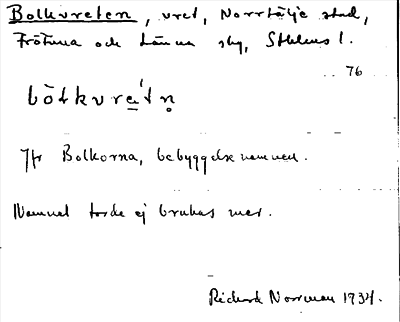 Bolkvreten, vret, Norrtälje stad,
Frötuna och Länna sly, Sthlms l.
76
bòłkvre̱'tn̥
Jfr Bolkorna, bebyggelsenamnen.
Namnet torde ej brukas mer.
Richard Norrman 1934.